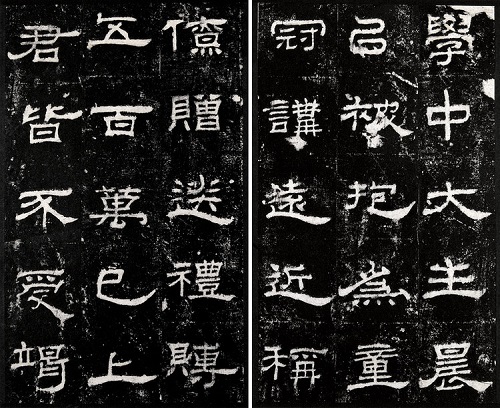 學中大主晨
㠯被抱為童
冠講遠近稱
僚贈送禮賻
五百萬已上
君皆不受竭